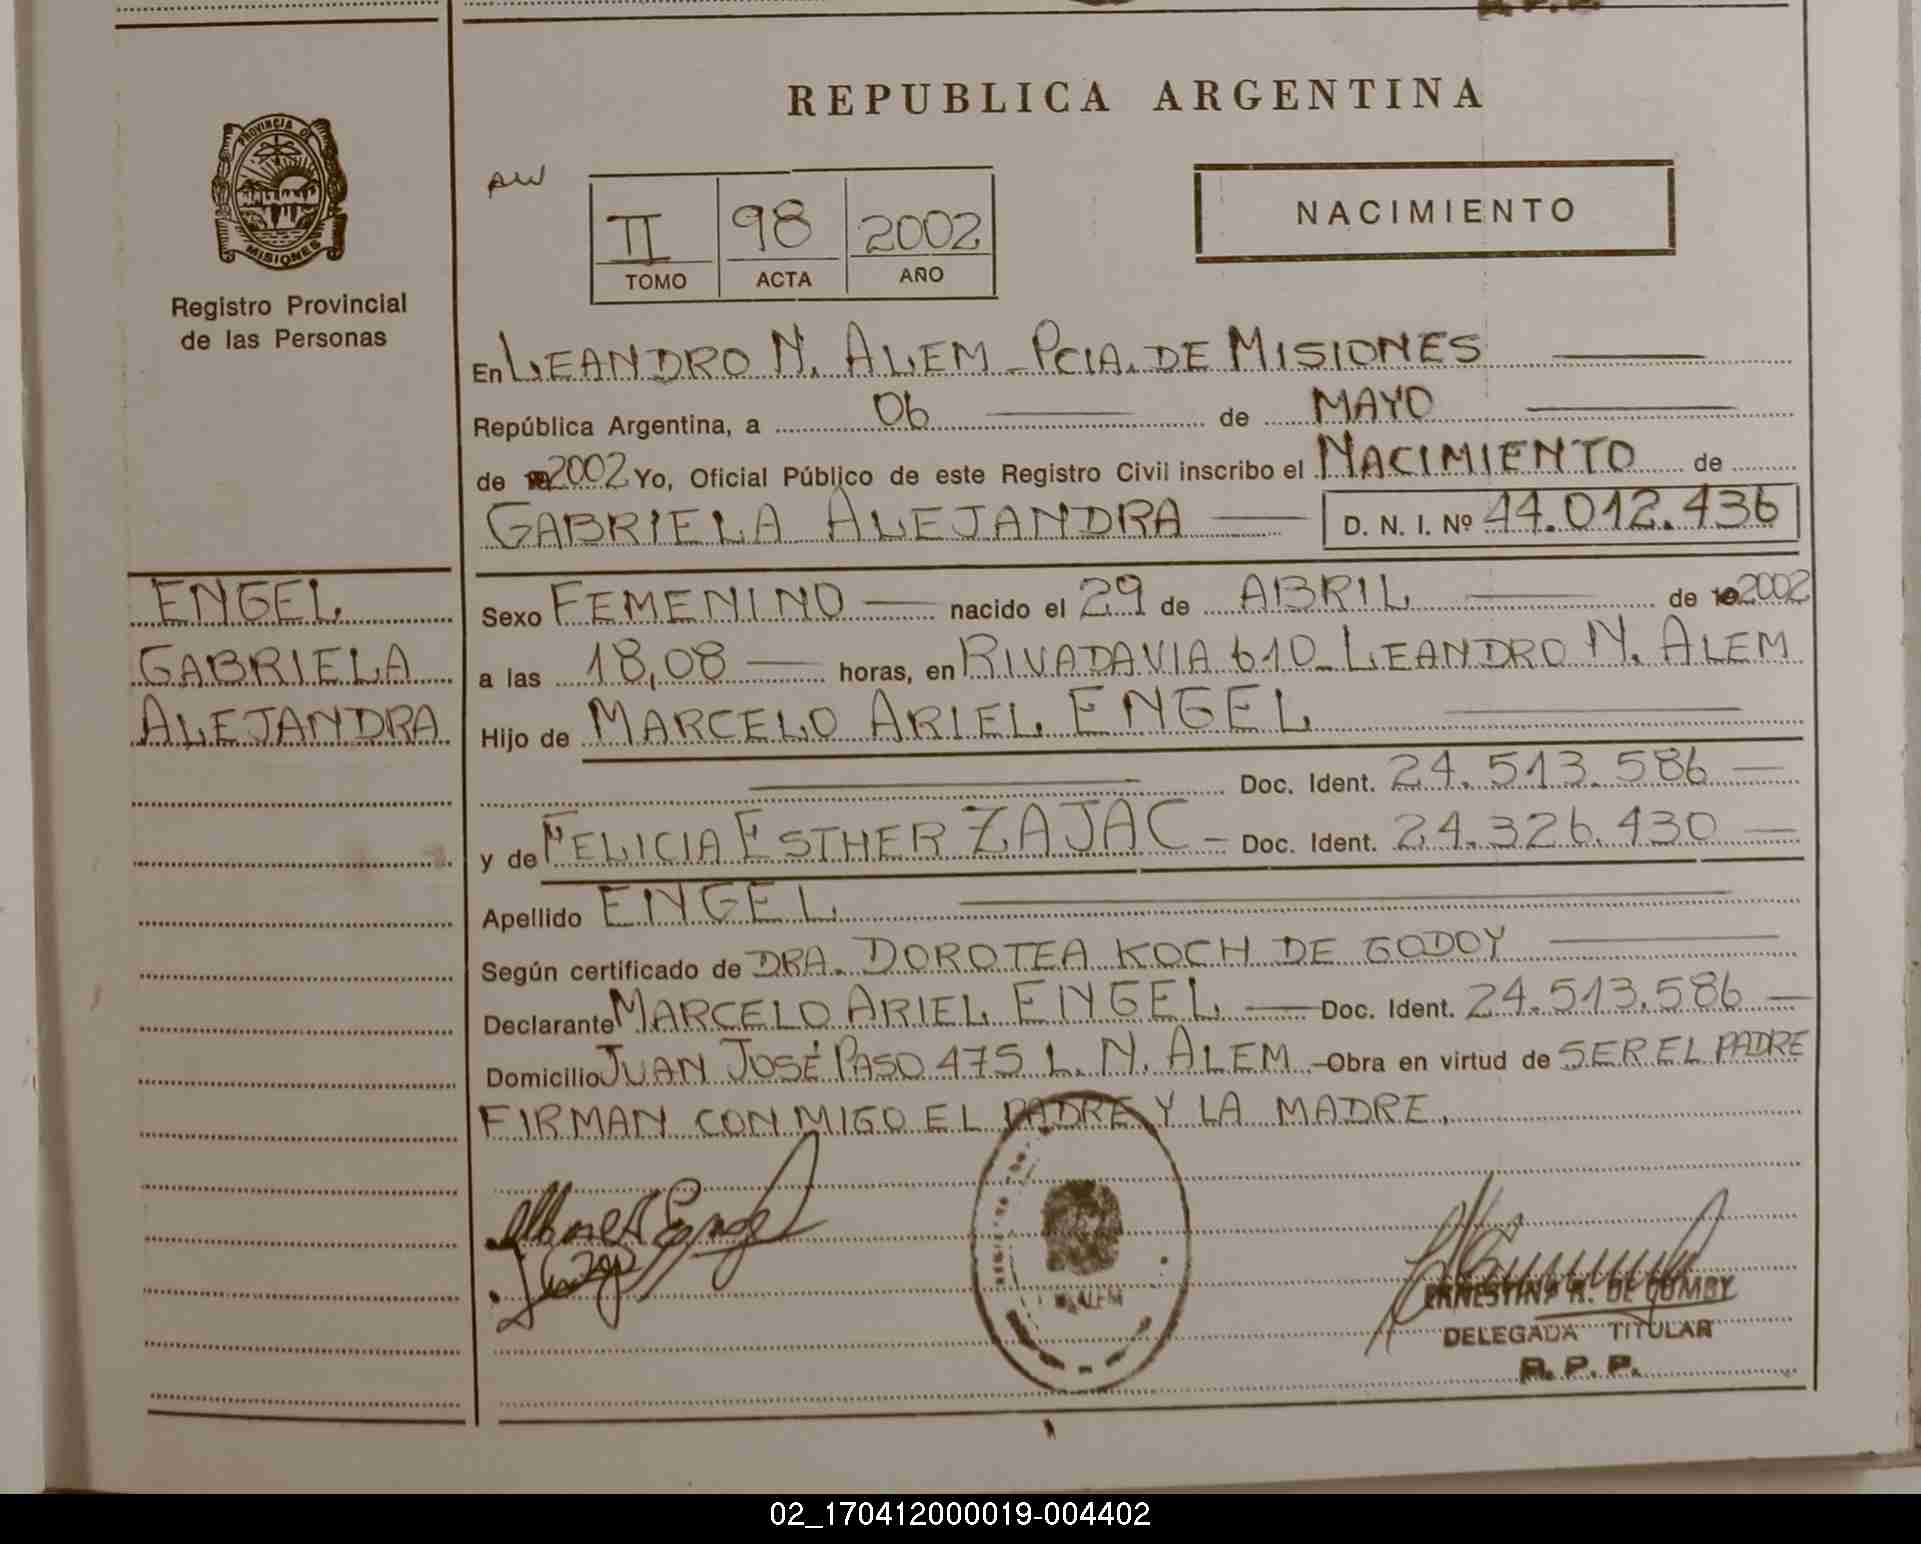 REPUBLICA ARGENTINA
PROVINCIA DE MISIONES
Registro Provincial
de las Personas
II 98 2002
TOMO ACTA AÑO
NACIMIENTO
En LEANDRO N. ALEM - PCIA. DE MISIONES
República Argentina, a 06 de MAYO
de 2002 Yo, Oficial Público de este Registro Civil inscribo el NACIMIENTO de
GABRIELA ALEJANDRA D. N. I. Nº 44.012.436
ENGEL
GABRIELA
ALEJANDRA
Sexo FEMENINO nacido el 29 de ABRIL de 2002
a las 18,08 horas, en RIVADAVIA 610 - LEANDRO N. ALEM
Hijo de MARCELO ARIEL ENGEL
Doc. Ident. 24.513.586
y de FELICIA ESTHER ZAJAC - Doc. Ident. 24.326.430
Apellido ENGEL
Según certificado de DRA. DOROTEA KOCH DE GODOY
Declarante MARCELO ARIEL ENGEL Doc. Ident. 24.513.586
Domicilio JUAN JOSÉ PASO 475 L. N. ALEM - Obra en virtud de SER EL PADRE
FIRMAN CONMIGO EL PADRE Y LA MADRE.
ERNESTINA R. DE COMBY
DELEGADA TITULAR
R. P. P.
02_170412000019-004402